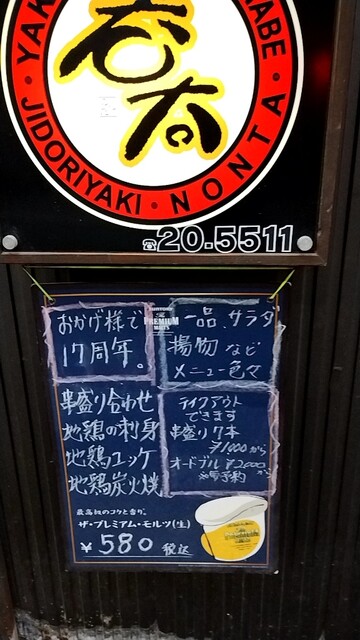 YAK
ABE
呑太
JIDORIYAKI・NONTA・
☎20-5511
おかげ様で
17周年。
SUNTORY
The
PREMIUM
MALT'S
一品、サラダ
揚物 など
メニュー色々
串盛り合わせ
地鶏の刺身
地鶏ユッケ
地鶏炭火焼
テイクアウト
できます
串盛り7本
¥1000から
オードブル ¥2000から
※要予約
最高級のコクと香り。
ザ・プレミアム・モルツ(生)
¥580 税込